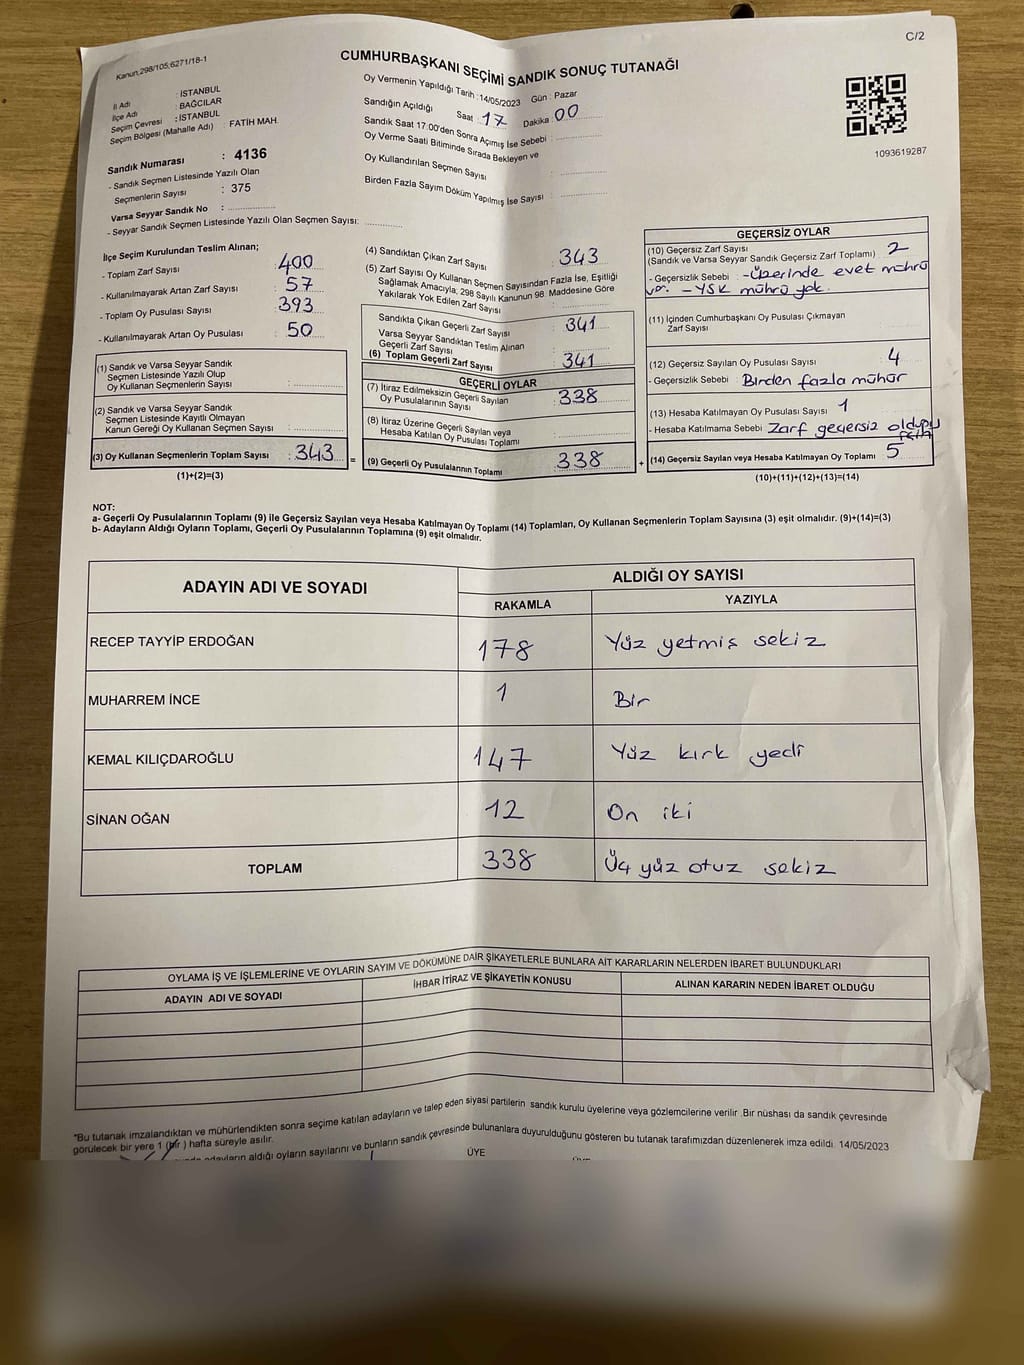 C/2
Kanun,298/105,6271/18-1
CUMHURBAŞKANI SEÇİMİ SANDIK SONUÇ TUTANAĞI
İl Adı : İSTANBUL
İlçe Adı : BAĞCILAR
Seçim Çevresi : İSTANBUL
Seçim Bölgesi (Mahalle Adı) : FATİH MAH.
Sandık Numarası : 4136
- Sandık Seçmen Listesinde Yazılı Olan
Seçmenlerin Sayısı : 375
Varsa Seyyar Sandık No :
- Seyyar Sandık Seçmen Listesinde Yazılı Olan Seçmen Sayısı:
Oy Vermenin Yapıldığı Tarih :14/05/2023 Gün : Pazar
Sandığın Açıldığı Saat 17 Dakika 00
Sandık Saat 17:00'den Sonra Açımış İse Sebebi :
Oy Verme Saati Bitiminde Sırada Bekleyen ve
Oy Kullandırılan Seçmen Sayısı :
Birden Fazla Sayım Döküm Yapılmış İse Sayısı :
1093619287
İlçe Seçim Kurulundan Teslim Alınan;
- Toplam Zarf Sayısı : 400
- Kullanılmayarak Artan Zarf Sayısı : 57
- Toplam Oy Pusulası Sayısı : 393
- Kullanılmayarak Artan Oy Pusulası : 50
(1) Sandık ve Varsa Seyyar Sandık
Seçmen Listesinde Yazılı Olup
Oy Kullanan Seçmenlerin Sayısı :
(2) Sandık ve Varsa Seyyar Sandık
Seçmen Listesinde Kayıtlı Olmayan
Kanun Gereği Oy Kullanan Seçmen Sayısı :
(3) Oy Kullanan Seçmenlerin Toplam Sayısı : 343 =
(1)+(2)=(3)
(4) Sandıktan Çıkan Zarf Sayısı : 343
(5) Zarf Sayısı Oy Kullanan Seçmen Sayısından Fazla İse, Eşitliği
Sağlamak Amacıyla, 298 Sayılı Kanunun 98. Maddesine Göre
Yakılarak Yok Edilen Zarf Sayısı :
Sandıkta Çıkan Geçerli Zarf Sayısı : 341
Varsa Seyyar Sandıktan Teslim Alınan
Geçerli Zarf Sayısı :
(6) Toplam Geçerli Zarf Sayısı : 341
GEÇERLİ OYLAR
(7) İtiraz Edilmeksizin Geçerli Sayılan
Oy Pusulalarının Sayısı : 338
(8) İtiraz Üzerine Geçerli Sayılan veya
Hesaba Katılan Oy Pusulası Toplamı :
(9) Geçerli Oy Pusulalarının Toplamı : 338 +
GEÇERSİZ OYLAR
(10) Geçersiz Zarf Sayısı
(Sandık ve Varsa Seyyar Sandık Geçersiz Zarf Toplamı) : 2
- Geçersizlik Sebebi : -Üzerinde evet mührü
var. - YSK mührü yok.
(11) İçinden Cumhurbaşkanı Oy Pusulası Çıkmayan
Zarf Sayısı :
(12) Geçersiz Sayılan Oy Pusulası Sayısı : 4
- Geçersizlik Sebebi : Birden fazla mühür
(13) Hesaba Katılmayan Oy Pusulası Sayısı : 1
- Hesaba Katılmama Sebebi : Zarf geçersiz olduğu
için
(14) Geçersiz Sayılan veya Hesaba Katılmayan Oy Toplamı : 5
(10)+(11)+(12)+(13)=(14)
NOT:
a- Geçerli Oy Pusulalarının Toplamı (9) ile Geçersiz Sayılan veya Hesaba Katılmayan Oy Toplamı (14) Toplamları, Oy Kullanan Seçmenlerin Toplam Sayısına (3) eşit olmalıdır. (9)+(14)=(3)
b- Adayların Aldığı Oyların Toplamı, Geçerli Oy Pusulalarının Toplamına (9) eşit olmalıdır.
ADAYIN ADI VE SOYADI ALDIĞI OY SAYISI
RAKAMLA YAZIYLA
RECEP TAYYİP ERDOĞAN 178 Yüz yetmiş sekiz
MUHARREM İNCE 1 Bir
KEMAL KILIÇDAROĞLU 147 Yüz kırk yedi
SİNAN OĞAN 12 On iki
TOPLAM 338 Üç yüz otuz sekiz
OYLAMA İŞ VE İŞLEMLERİNE VE OYLARIN SAYIM VE DÖKÜMÜNE DAİR ŞİKAYETLERLE BUNLARA AİT KARARLARIN NELERDEN İBARET BULUNDUKLARI
ADAYIN ADI VE SOYADI İHBAR İTİRAZ VE ŞİKAYETİN KONUSU ALINAN KARARIN NEDEN İBARET OLDUĞU
*Bu tutanak imzalandıktan ve mühürlendikten sonra seçime katılan adayların ve talep eden siyasi partilerin sandık kurulu üyelerine veya gözlemcilerine verilir .Bir nüshası da sandık çevresinde
görülecek bir yere 1 (bir ) hafta süreyle asılır.
adayların aldığı oyların sayılarını ve bunların sandık çevresinde bulunanlara duyurulduğunu gösteren bu tutanak tarafımızdan düzenlenerek imza edildi. 14/05/2023
ÜYE